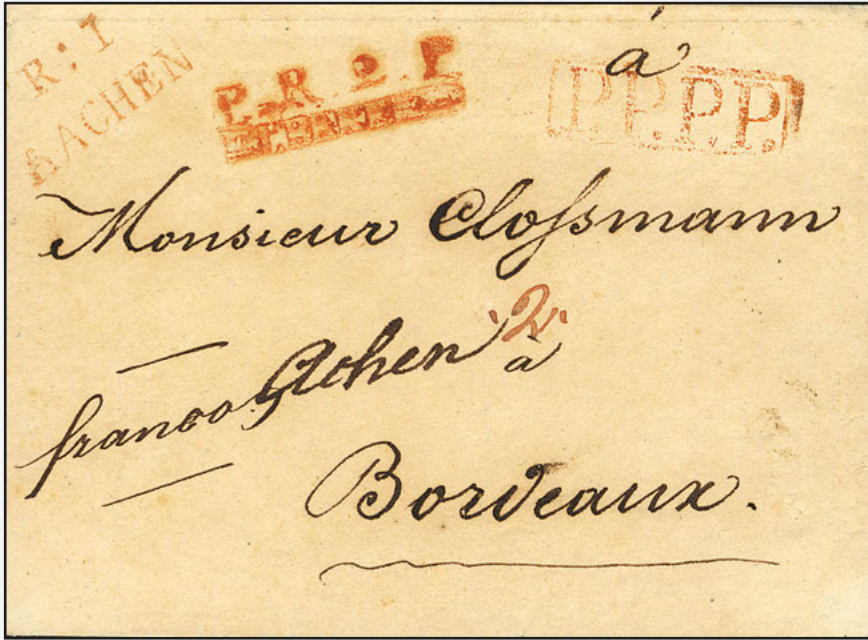 á
R: I
AACHEN
P.R. 2. F
P.P.P.P.
Monsieur Cloſsmann
"2"
franco Achen à
Bordeaux.